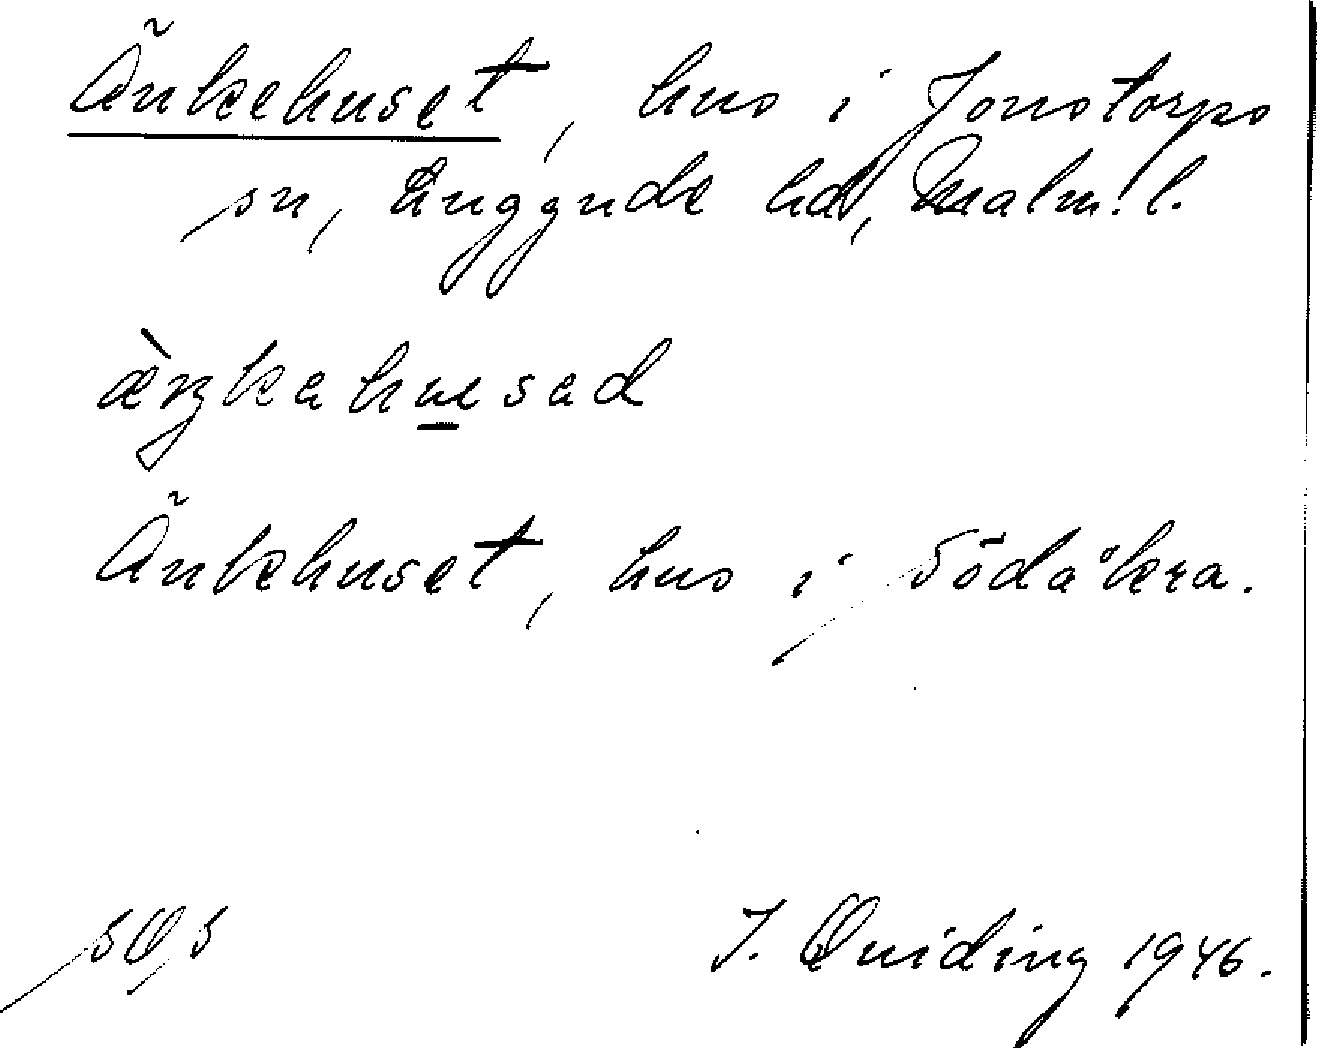 Änkehuset, hus i Jonstorps
sn, Luggude hd, Malm. l.
æ̀ŋkahu̲sad
Änkehuset, hus i Södåkra.
J. Quiding 1946.